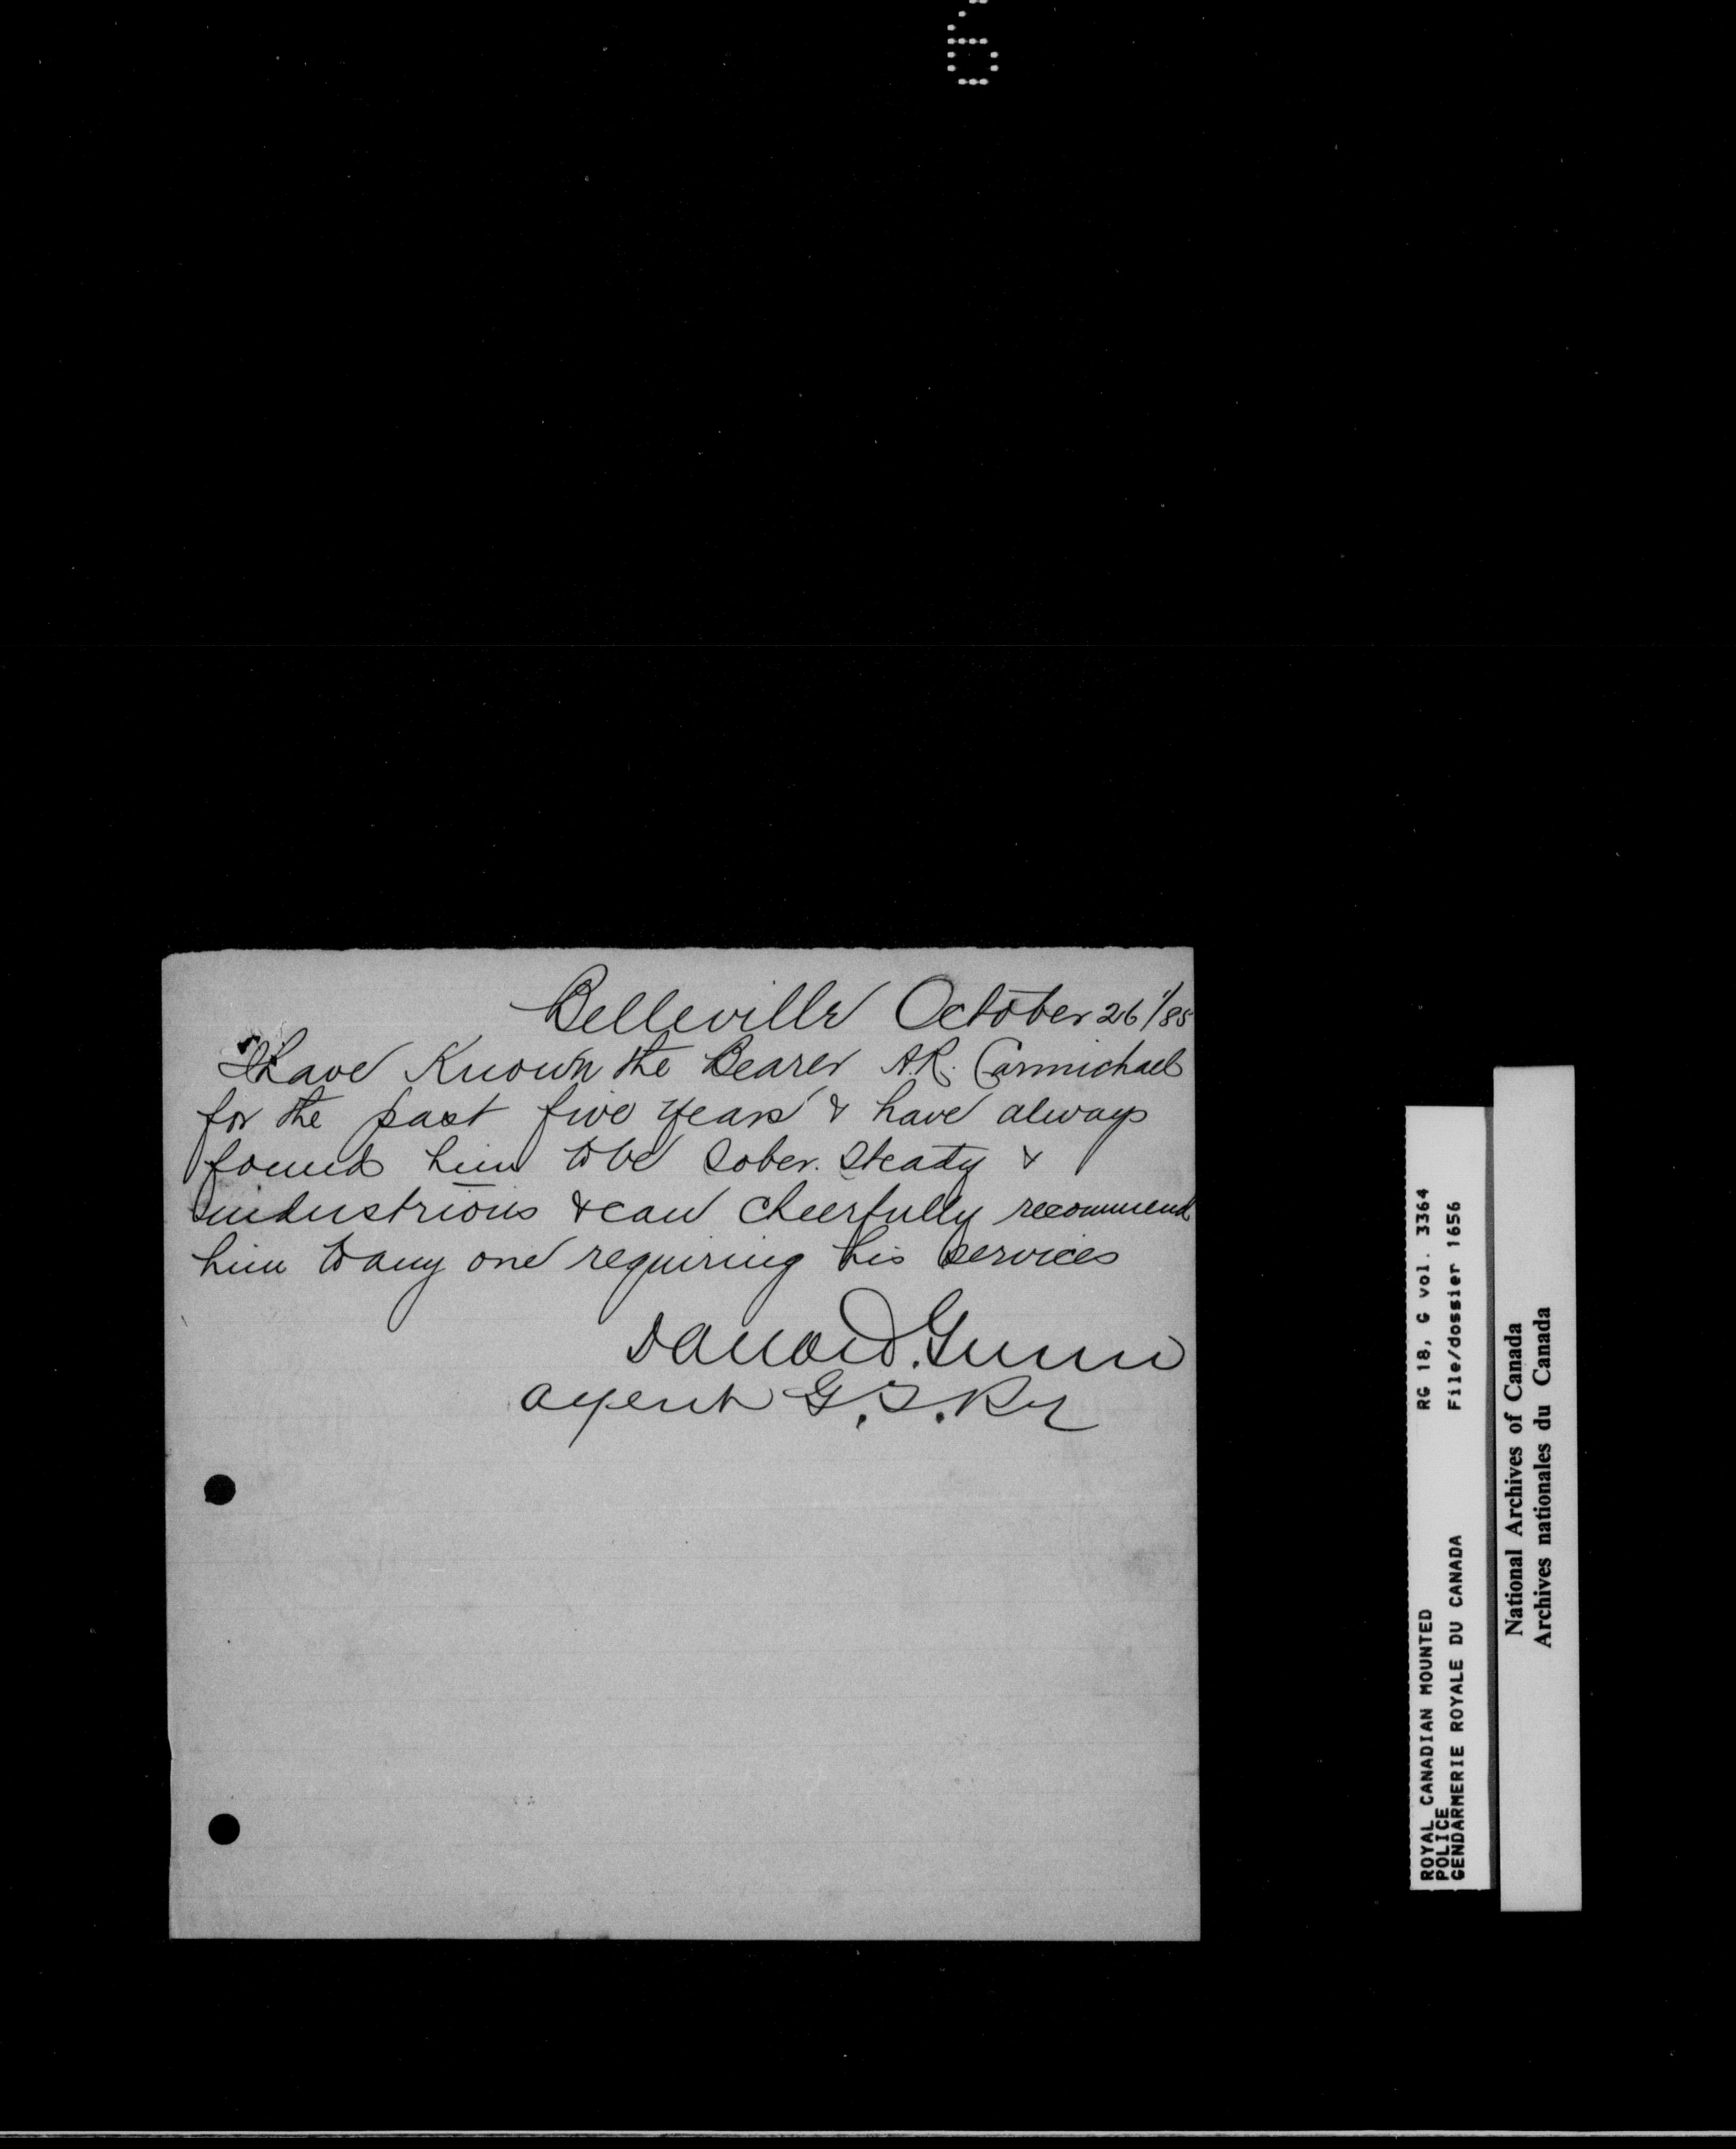 Belleville October 26/85
I have Known the Bearer A.R. Carmichael
for the past five years & have always
found him to be Sober. Steady &
industrious & can cheerfully recommend
him to any one requiring his services
Gunn
agent G.T.Ry
ROYAL CANADIAN MOUNTED RG 18, G vol. 3364
POLICE
GENDARMERIE ROYALE DU CANADA File/dossier 1656
National Archives of Canada
Archives nationales du Canada